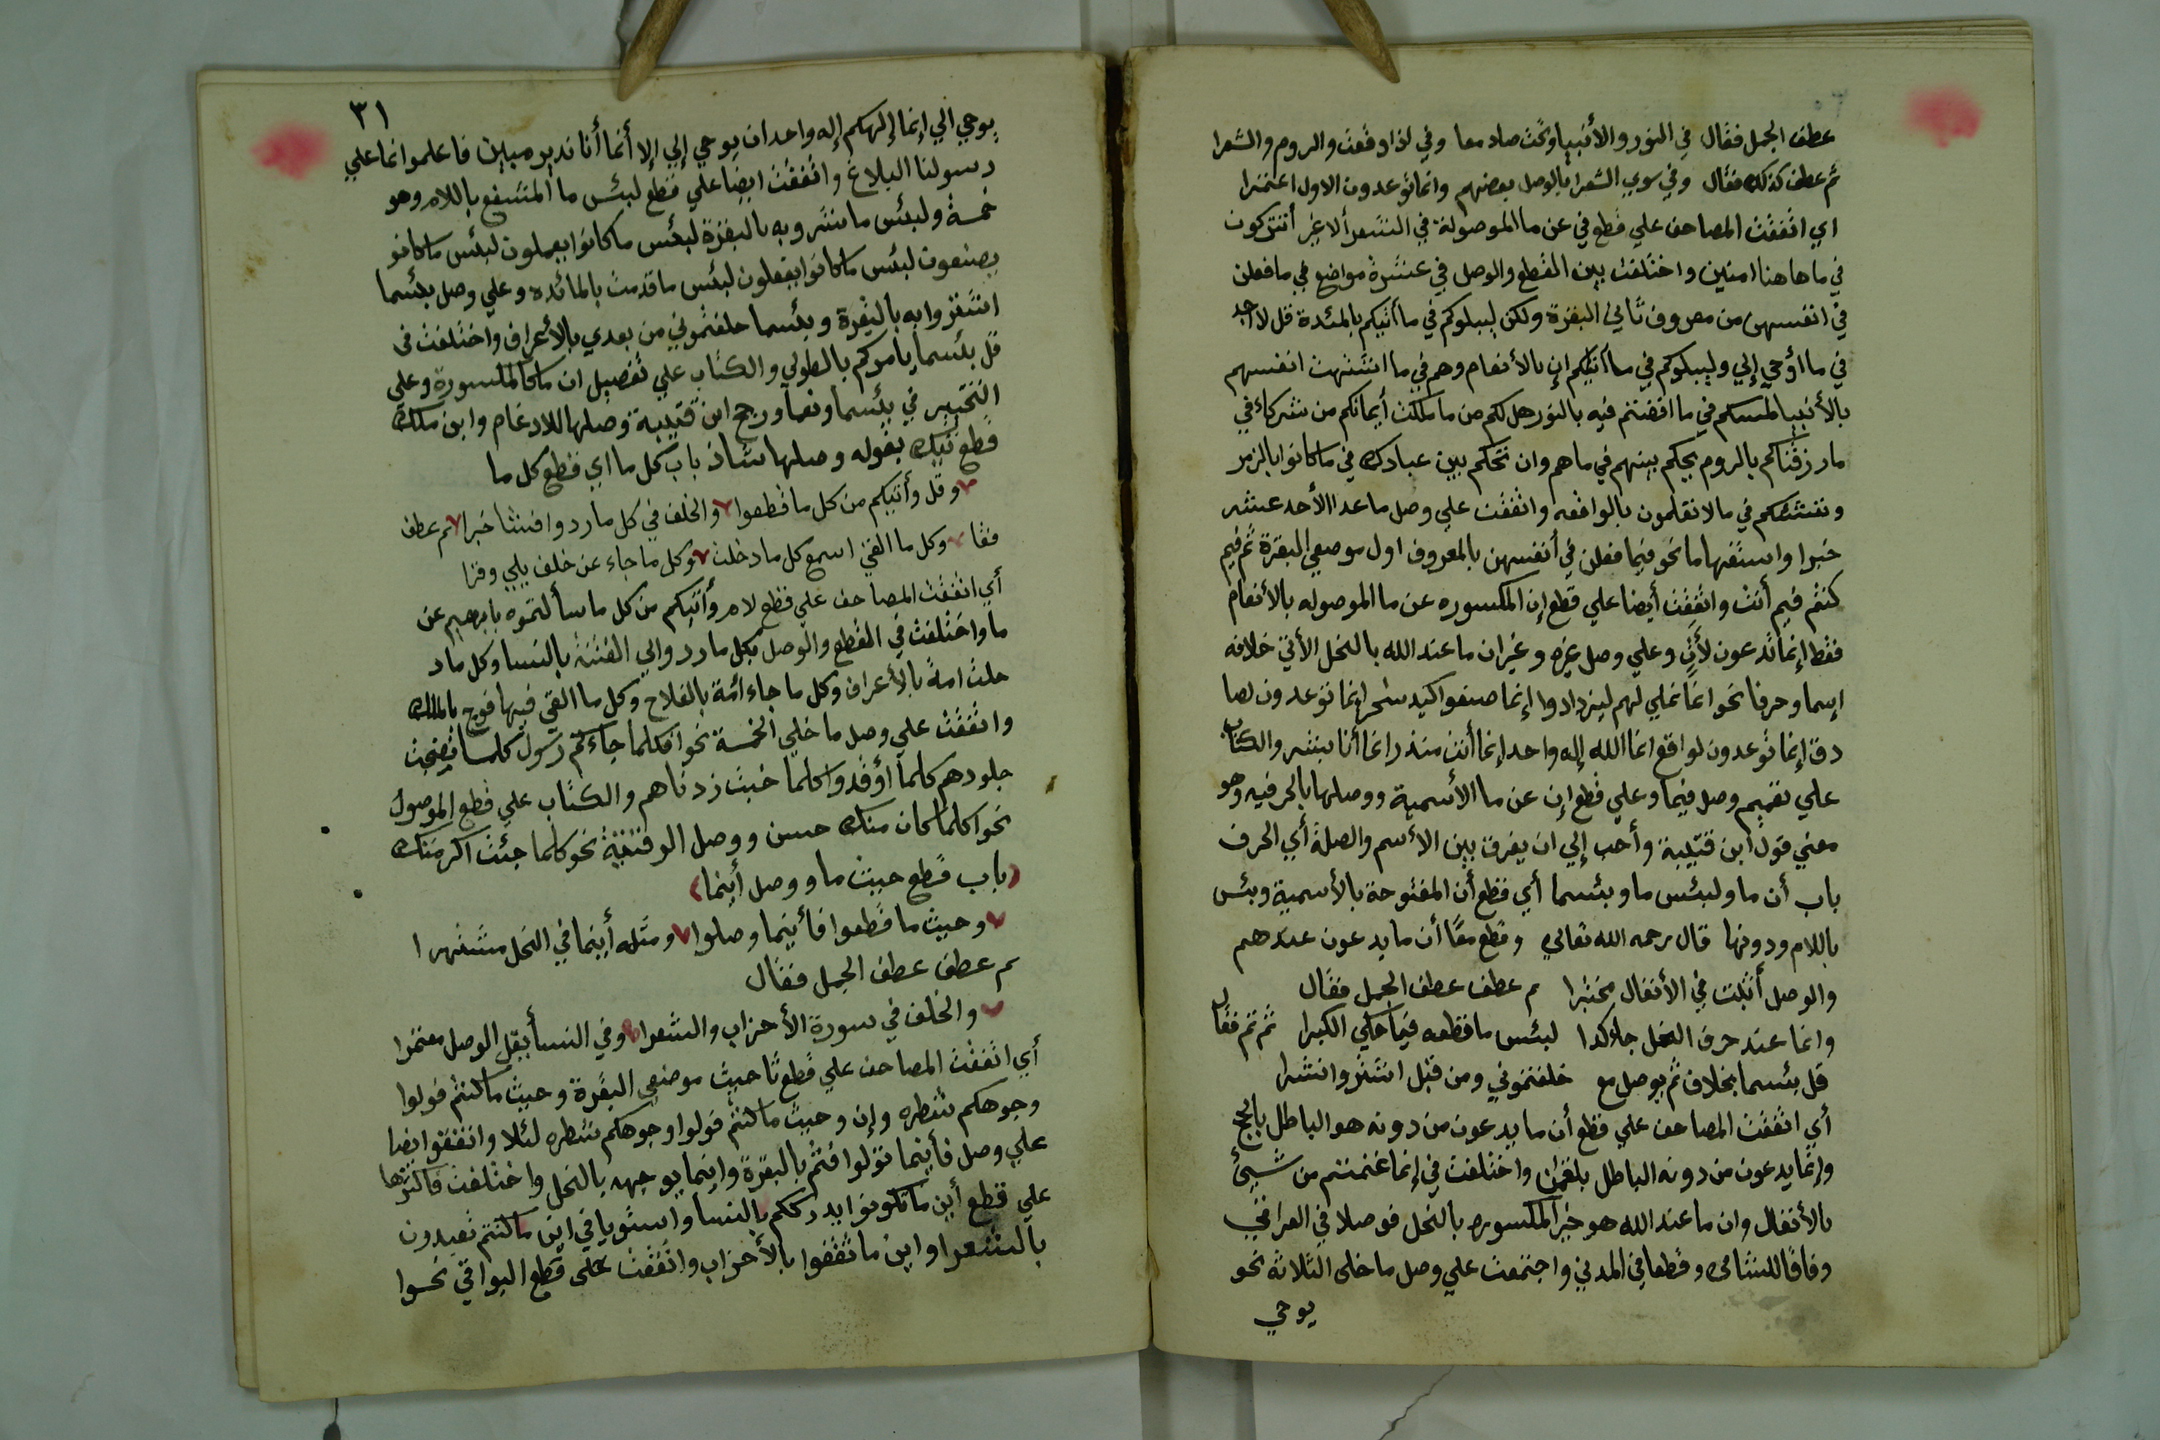 عطف الجمل فقال في النور والأنبيا وتحت صاد معا وفي لذا دفعت والروم والشعرا
ثم عطف كذلك فقال وفي سوي الشعرا بالوصل بعضهم وانما توعدون الاول اعتمرا
اي اتفقت المصاحف علي قطع في عن ما الموصولة في الشعر ألا غير أتتركون
في ما هاهنا امنين واختلفت بين القطع والوصل في عشرة مواضع في ما فعلن
في انفسهن من معروف ثاني البقرة ولكن ليبلوكم في ما أتيكم بالمئدة قل لا اجد
في ما اؤحي إلي وليبلوكم في ما أتيكم ان بالأنعام وهم في ما اشتهت انفسهم
بالأنبيا لمسكم في ما افضتم فيه بالنور هل لكم من ما ملكت أيمانكم من شركاء في
ما رزقناكم بالروم يحكم بينهم في ما هم وان تحكم بين عبادك في ما كانوا بالزمر
وننشئكم في ما لا تعلمون بالواقعه واتفقت علي وصل ما عدا الأحد عشر
خبرا واستفهاما نحو فيما فعلن في أنفسهن بالمعروف اول موضعي البقرة ثم فيم
كنتم فيم أنت واتفقت أيضا علي قطع إن المكسوره عن ما الموصوله بالأنعام
فقط إنما تدعون لأت وعلي وصل غيره وغير ان ما عند الله بالنحل الأتي خلافه
إسما وحرفا نحو انما نملي لهم ليزدادوا إنما صنعوا كيد سحر إنما توعدون لصا
دق إنما توعدون لواقع انما الله إله واحد إنما أنت منذر انما أنا بشر والكتاب
علي تعميم وصل فيما وعلي قطع إن عن ما الأسمية ووصلها بالحرفيه وهو
معني قول ابن قتيبة وأحب إلي ان يفرق بين الأسم والصلة أي الحرف
باب أن ما ولبئس ما وبئسما أي قطع أن المفتوحة بالأسمية وبئس
باللام ودونها قال رحمه الله تعالي وقطع معًا أن ما يدعون عندهم
والوصل أثبت في الأنفال مختبرا ثم عطف عطف الجمل فقال
وانما عند حرف النحل جاء كدا لبئس ما قطعه فيما حكي الكبرا ثم تم فقال
قل بئسما بخلاف ثم يوصل مع خلفتموني ومن قبل اشتروا نشرا
أي اتفقت المصاحف علي قطع أن ما يدعون من دونه هو الباطل بالحج
وإنما يدعون من دونه الباطل بلقمان واختلفت في إنما غنمتم من شيئ
بالأنفال وان ما عند الله هو خير المكسوره بالنحل فوصلا في العراقي
وفاقا للشامي وقطعا في المدني واجتمعت علي وصل ما خلى الثلاثة نحو
يوحي
٣١
يوحي الي إنما إلهكم إله واحد ان يوحي إلي إلا أنما أنا نذير مبين فاعلموا انما علي
رسولنا البلاغ واتفقت ايضا علي قطع لبئس ما المتشفع باللام وهو
خمسة ولبئس ما شروبه بالبقرة لبئس ما كانوا يعملون لبئس ما كانو
يصنعون لبئس ما كانوا يفعلون لبئس ما قدمت بالمائده وعلي وصل بئسما
اشتروا به بالبقرة وبئسما خلفتموني من بعدي بالأعراف واختلفت في
قل بئسما يأمركم بالطولي والكتاب علي تفصيل ان ما كالمكسورة وعلي
التخيير في بئسما ونعما ورجح ابن قتيبة وصلها للادغام وابن ملك
قطع تيك بقوله وصلها شاذ باب كل ما اي قطع كل ما
وقل وأتيكم من كل ما قطعوا والخلف في كل ما ردوا فشا خبرا ثم عطف
فقا وكل ما القي اسمع كل ما دخلت وكل ما جاء عن خلف يلي وقرا
أي اتفقت المصاحف علي قطع لام وأتيكم من كل ما سألتموه بابرهيم عن
ما واختلفت في القطع والوصل بكل ما ردوا الي الفتنة بالنسا وكل ما د
خلت امة بالأعراف وكل ما جاء امة بالفلاح وكل ما القي فيها فوج بالملك
واتفقت علي وصل ما خلي الخمسة نحو افكلما جاءكم رسول كلما نضجت
جلودهم كلما أوقدوا كلما خبت زدناهم والكتاب علي قطع الموصول
نحو اكلما كان منك حسن ووصل الوقتية نحو كلما جئت اكرمتك
(باب قطع حيث ما ووصل أينما)
وحيث ما قطعوا فأينما وصلوا ومثله أينما في النحل مشتهرا
ثم عطف عطف الجمل فقال
والخلف في سورة الأحزاب والشعرا وفي النسأ يقل الوصل معتمرا
أي اتفقت المصاحف علي قطع ثا حيث موضعي البقرة وحيث ما كنتم فولوا
وجوهكم شطره وإن وحيث ما كنتم فولوا وجوهكم شطره لئلا واتفقوا ايضا
علي وصل فأينما تولوا فثم بالبقرة واينما يوجهه بالنحل واختلفت فاكثرها
علي قطع أين ما تكونوا يدرككم بالنسا واستويا في اين ما كنتم تعبدون
بالشعرا واين ما ثقفوا بالأحزاب واتفقت على قطع البواقي نحوا